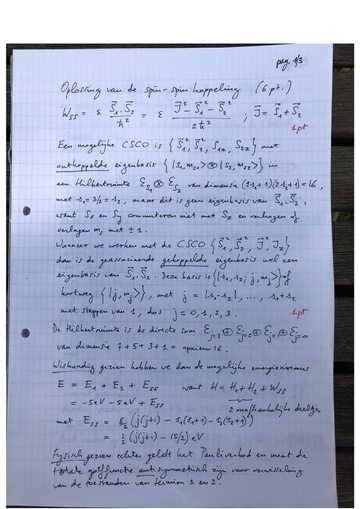 pag 1/3
Oplossing van de spin-spin koppeling (6 pt.)
W_SS = ε S⃗₁·S⃗₂ / ħ² = ε (J⃗² - S⃗₁² - S⃗₂²) / 2ħ² ; J⃗ = S⃗₁ + S⃗₂
1pt
Een mogelijke CSCO is {S⃗₁², S⃗₂², S₁z, S₂z} met
ontkoppelde eigenbasis {|s₁,m_{s1}> ⊗ |s₂,m_{s2}>} in
een Hilbertruimte ε_{S1} ⊗ ε_{S2} van dimensie (2s₁+1)(2s₂+1) = 16,
met s₁ = 3/2 = s₂, maar dit is geen eigenbasis van S⃗₁·S⃗₂,
want Sx en Sy commuteren niet met Sz en verlagen of
verlagen ms met ±1.
Wanneer we werken met de CSCO {S⃗₁², S⃗₂², J⃗², Jz}
dan is de geassocieerde gekoppelde eigenbasis wel een
eigenbasis van S⃗₁·S⃗₂. Deze basis is {|s₁,s₂; j, m_j>} of
kortweg {|j, m_j>}, met j = |s₁-s₂|, ..., s₁+s₂
met stappen van 1, dus j = 0, 1, 2, 3.
1pt
De Hilbertruimte is de directe som ε_{j=3} ⊕ ε_{j=2} ⊕ ε_{j=1} ⊕ ε_{j=0}
van dimensie 7+5+3+1 = opnieuw 16.
Wiskundig gezien hebben we dan de mogelijke energieniveaus
E = E₁ + E₂ + E_SS want H = H₁ + H₂ + W_SS
= -5eV - 5eV + E_SS 2 onafhankelijke deeltjes
met E_SS = ε/2 (j(j+1) - s₁(s₁+1) - s₂(s₂+1))
= 1/2 (j(j+1) - 15/2) eV
Fysisch gezien echter geldt het Pauliverbod en moet de
totale golffunctie antisymmetrisch zijn voor verwisseling
van de toestanden van fermion 1 en 2.